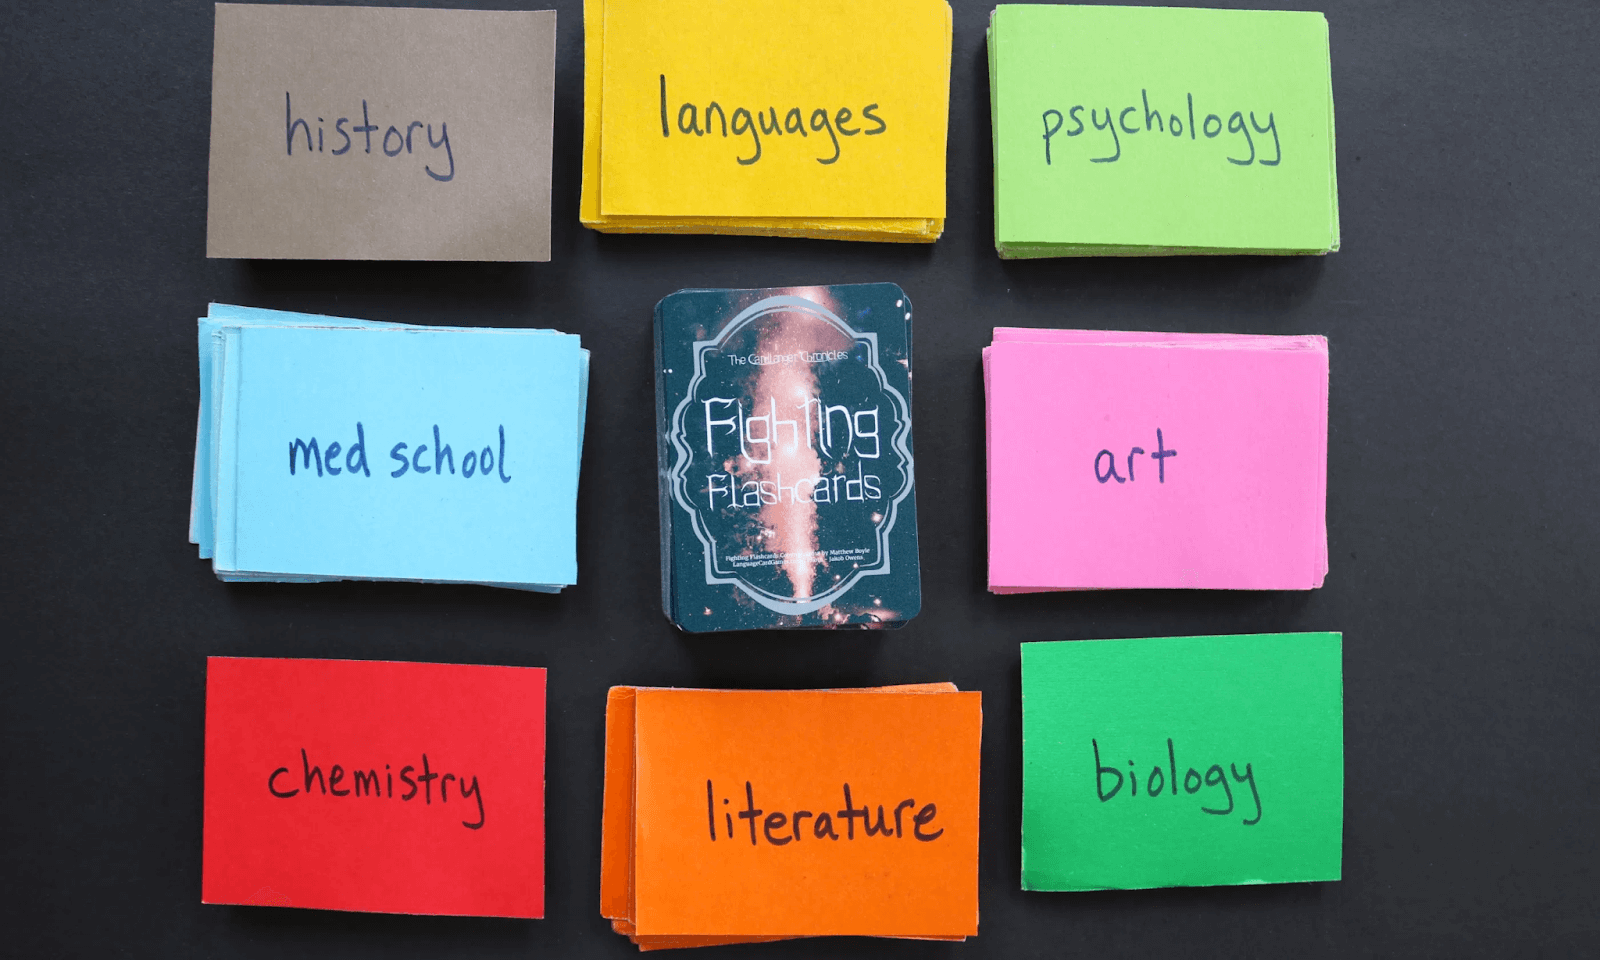 history
languages
psychology
med school
The Cardlanger Chronicles
Fighting
Flashcards
Fighting Flashcards by Matthew Boyle
Jakob Owens
art
chemistry
literature
biology